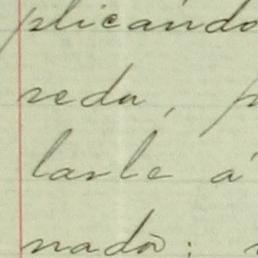 plicando
reda, p
larle á
nado: